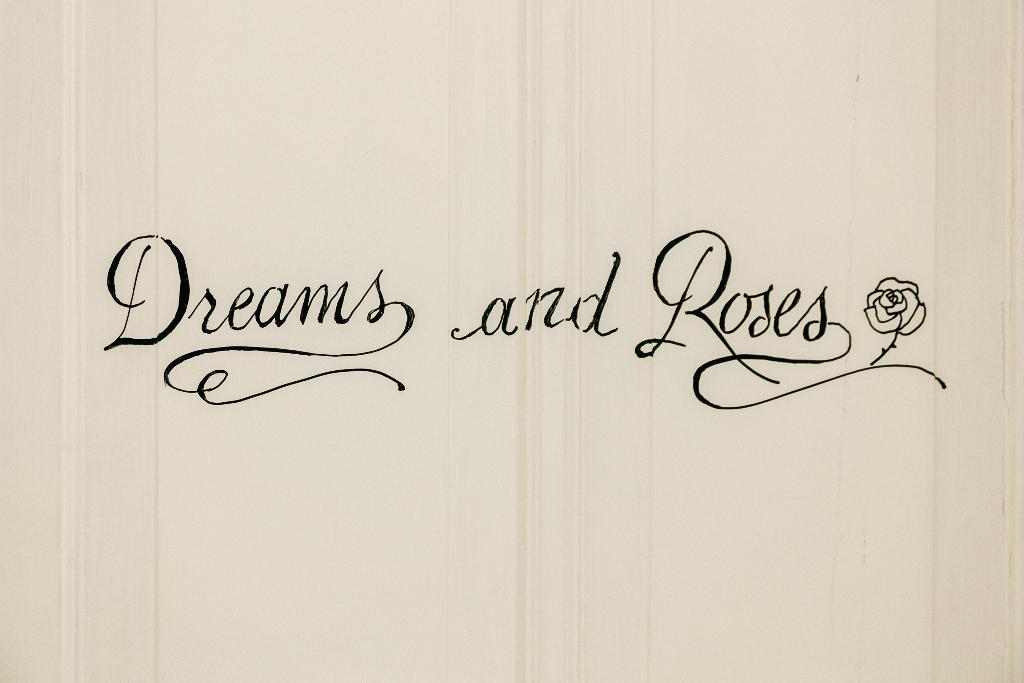 Dreams and Roses